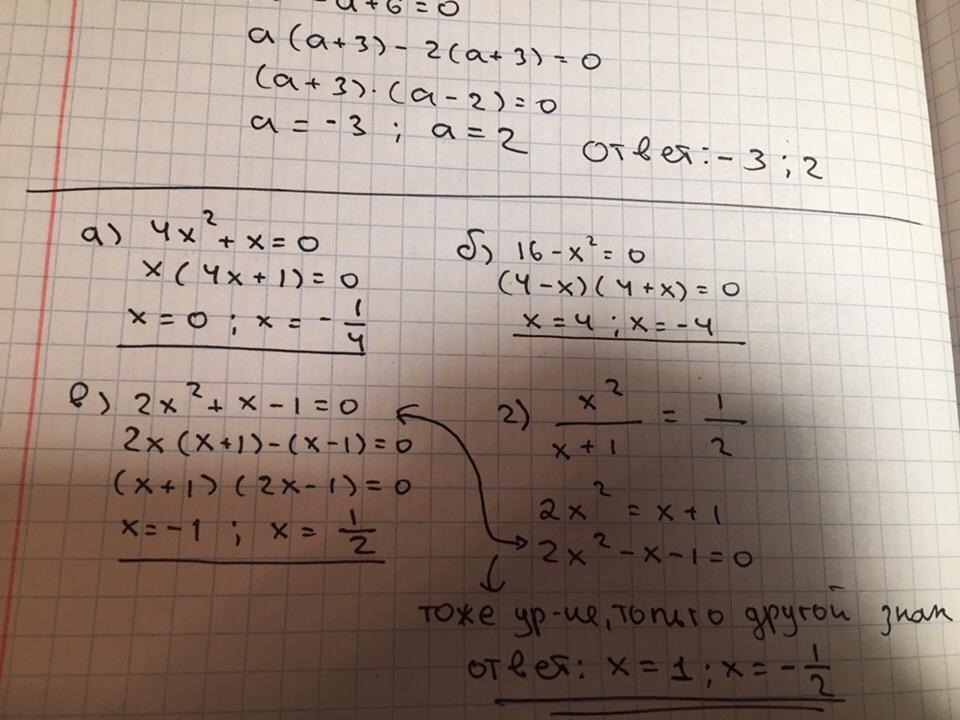 -a+6=0
a(a+3)-2(a+3)=0
(a+3)·(a-2)=0
a=-3 ; a=2
ответ:-3;2
а) 4x²+x=0
x(4x+1)=0
x=0 ; x=-1/4
б) 16-x²=0
(4-x)(4+x)=0
x=4 ; x=-4
в) 2x²+x-1=0
2x(x+1)-(x-1)=0
(x+1)(2x-1)=0
x=-1 ; x=1/2
г) x²/(x+1) = 1/2
2x²=x+1
2x²-x-1=0
тоже ур-ие, только другой знак
ответ: x=1 ; x=-1/2